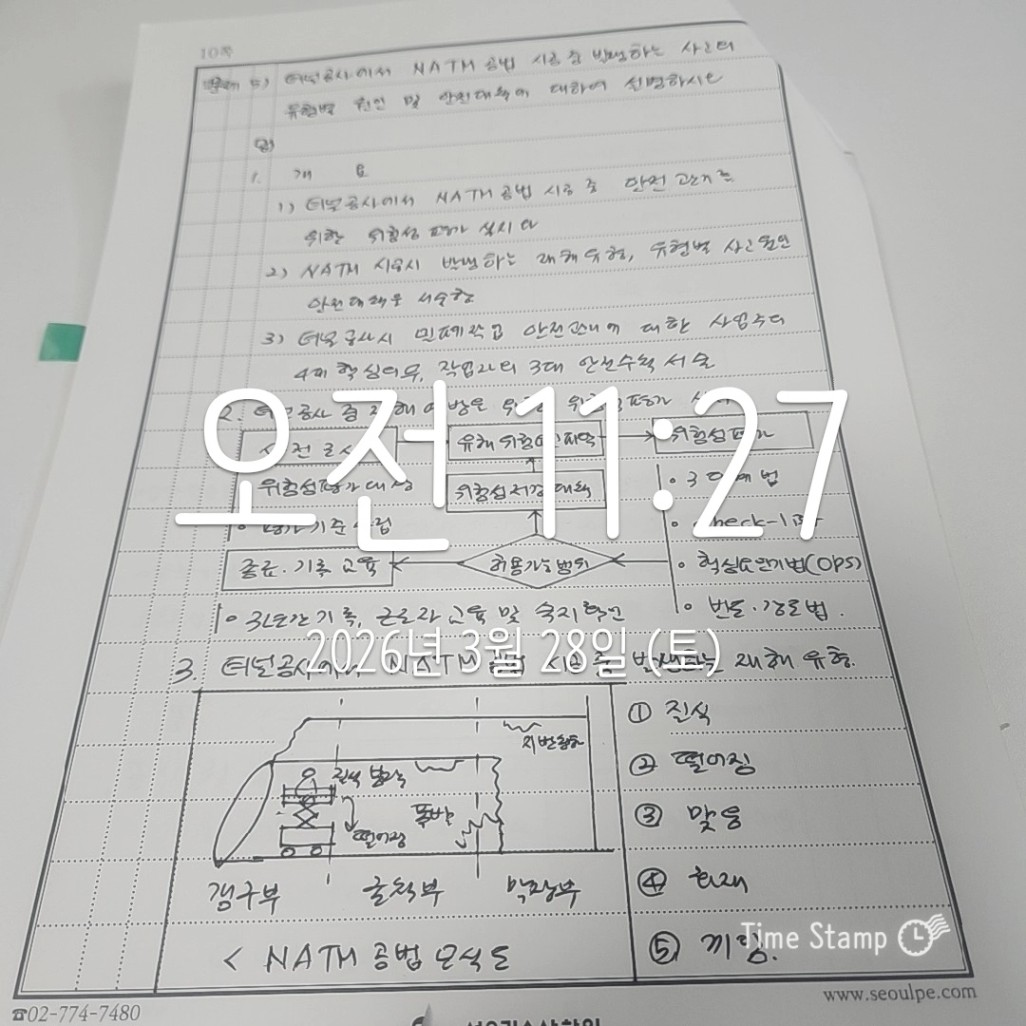 10쪽
문제 5) 터널공사에서 NATM 공법 시공 중 발생하는 사고의
유형별 원인 및 안전대책에 대하여 설명하시오
답)
1. 개 요
1) 터널공사에서 NATM 공법 시공 중 안전관리를
위한 위험성평가 실시 다
2) NATM 시공시 발생하는 재해유형, 유형별 사고원인
안전대책을 서술함
3) 터널공사시 밀폐작업 안전관리에 대한 사업주의
4대 핵심의무, 작업자의 3대 안전수칙 서술
2. 터널공사 중 재해예방을 위한 위험성평가
사전 조사
유해위험요인파악
위험성평가
위험성평가 대상
위험성저감대책
평가기준
허용가능범위
종료·기록 교육
• check-list
• 핵심요인기법(OPS)
• 빈도·강도법.
• 3년간 기록, 근로자 교육 및 숙지확인
3. 터널공사에서 NATM 공법 시공 중 발생하는 재해 유형.
질식
떨어짐
갱구부
굴착부
막장부
< NATM 공법 모식도
① 질식
② 떨어짐
③ 맞음
④ 화재
⑤ 끼임.
오전 11:27
2026년 3월 28일 (토)
Time Stamp
www.seoulpe.com
☎02-774-7480